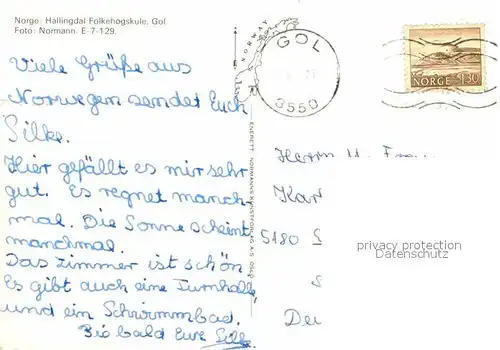 Norge: Hallingdal Folkehøgskule, Gol
Foto: Normann. E-7-129.
Viele Grüße aus
Norwegen sendet Euch
Silke.
Hier gefällt es mir sehr
gut. Es regnet manch-
mal. Die Sonne scheint
manchmal.
Das Zimmer ist schön
Es gibt auch eine Turnhalle,
und ein Schwimmbad.
Bis bald Eure Silke
NORWAY
GOL
3550
NORGE 1.30
ENERETT: NORMANNS KUNSTFORLAG A.S. OSLO
Herrn u. Fra...
Kar
5180
privacy protection
Datenschutz
s
Deu